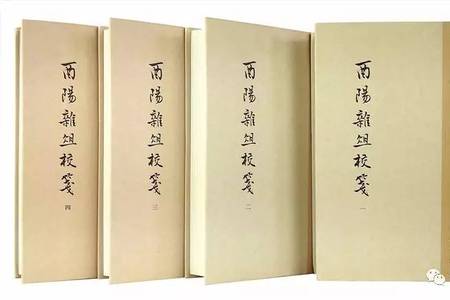 酉陽雜俎校箋
一
酉陽雜俎校箋
二
酉陽雜俎校箋
三
酉陽雜俎校箋
四